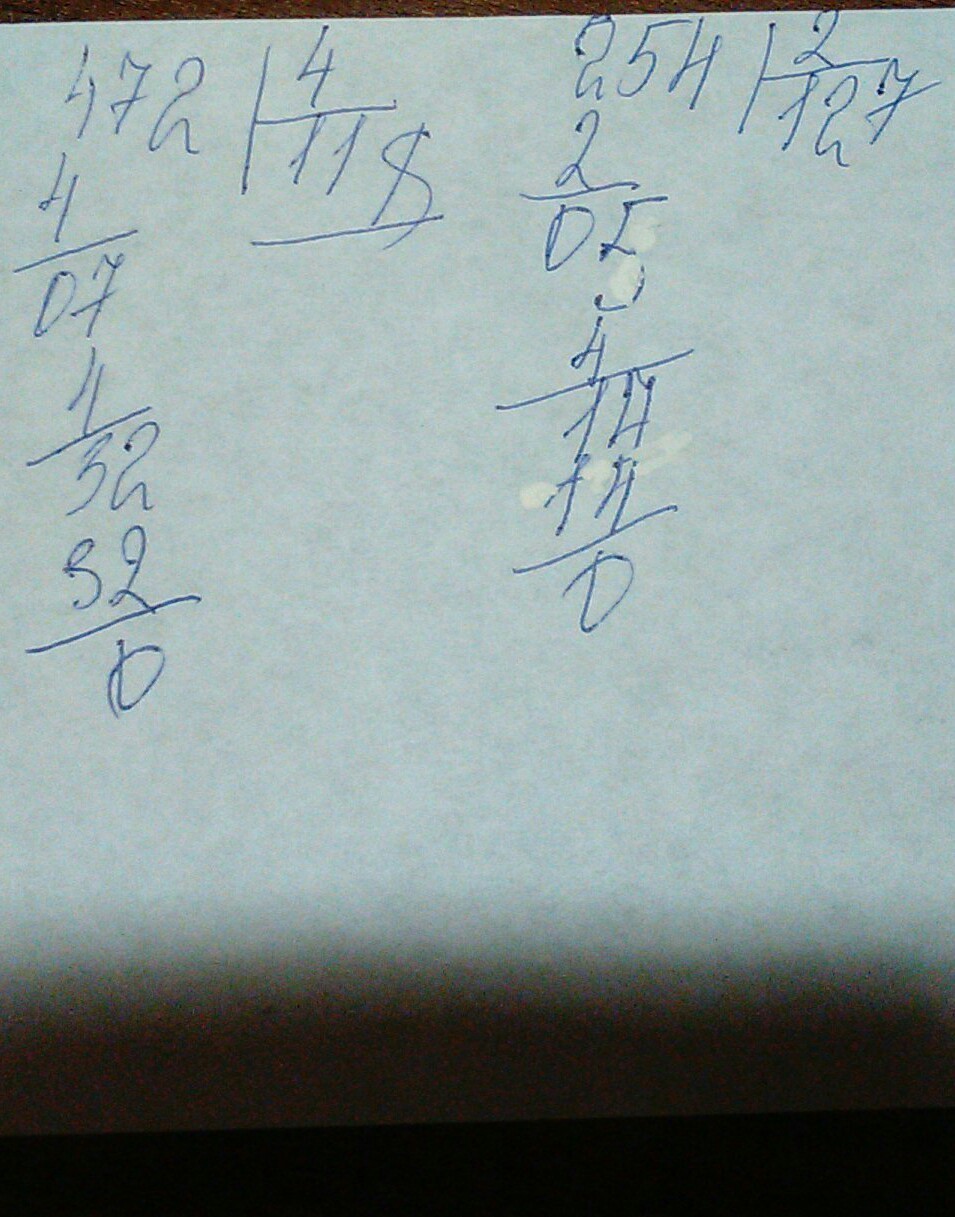 472 4
118
4
07
4
32
32
0
254 2
127
2
05
4
14
14
0